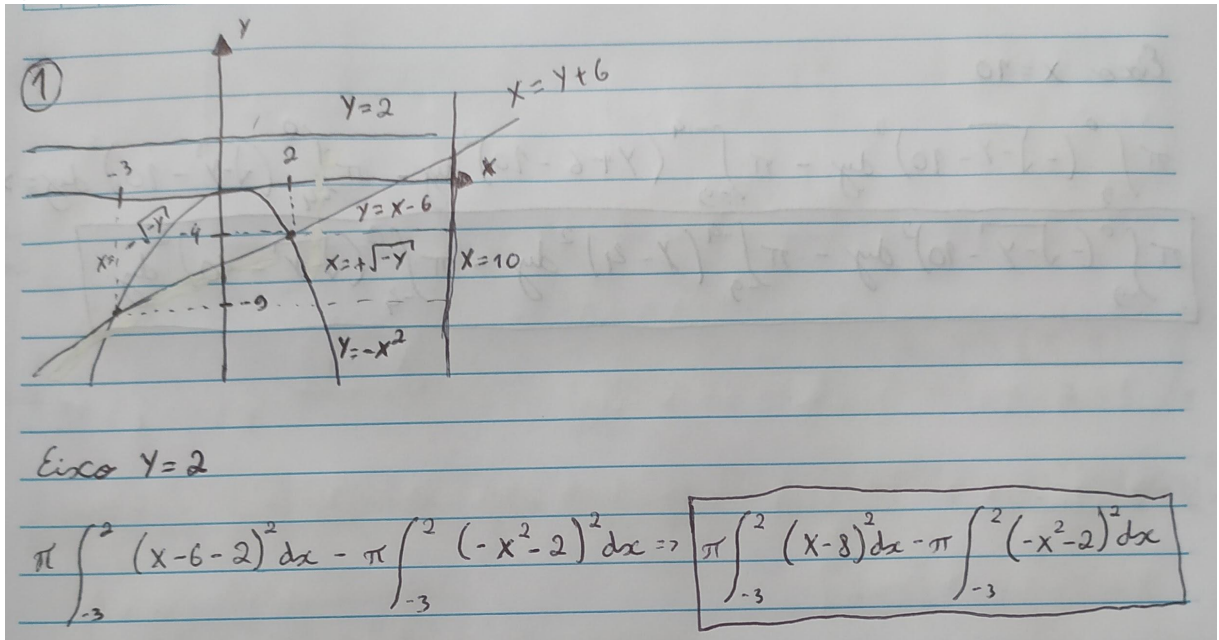 Y
①
X = Y + 6
Y = 2
-3
2
X
Y = X - 6
√-Y
-4
X =
X = +√-Y
X = 10
-9
Y = -X²
Eixo Y = 2
π ∫₋₃² (x-6-2)² dx - π ∫₋₃² (-x²-2)² dx => π ∫₋₃² (x-8)² dx - π ∫₋₃² (-x²-2)² dx